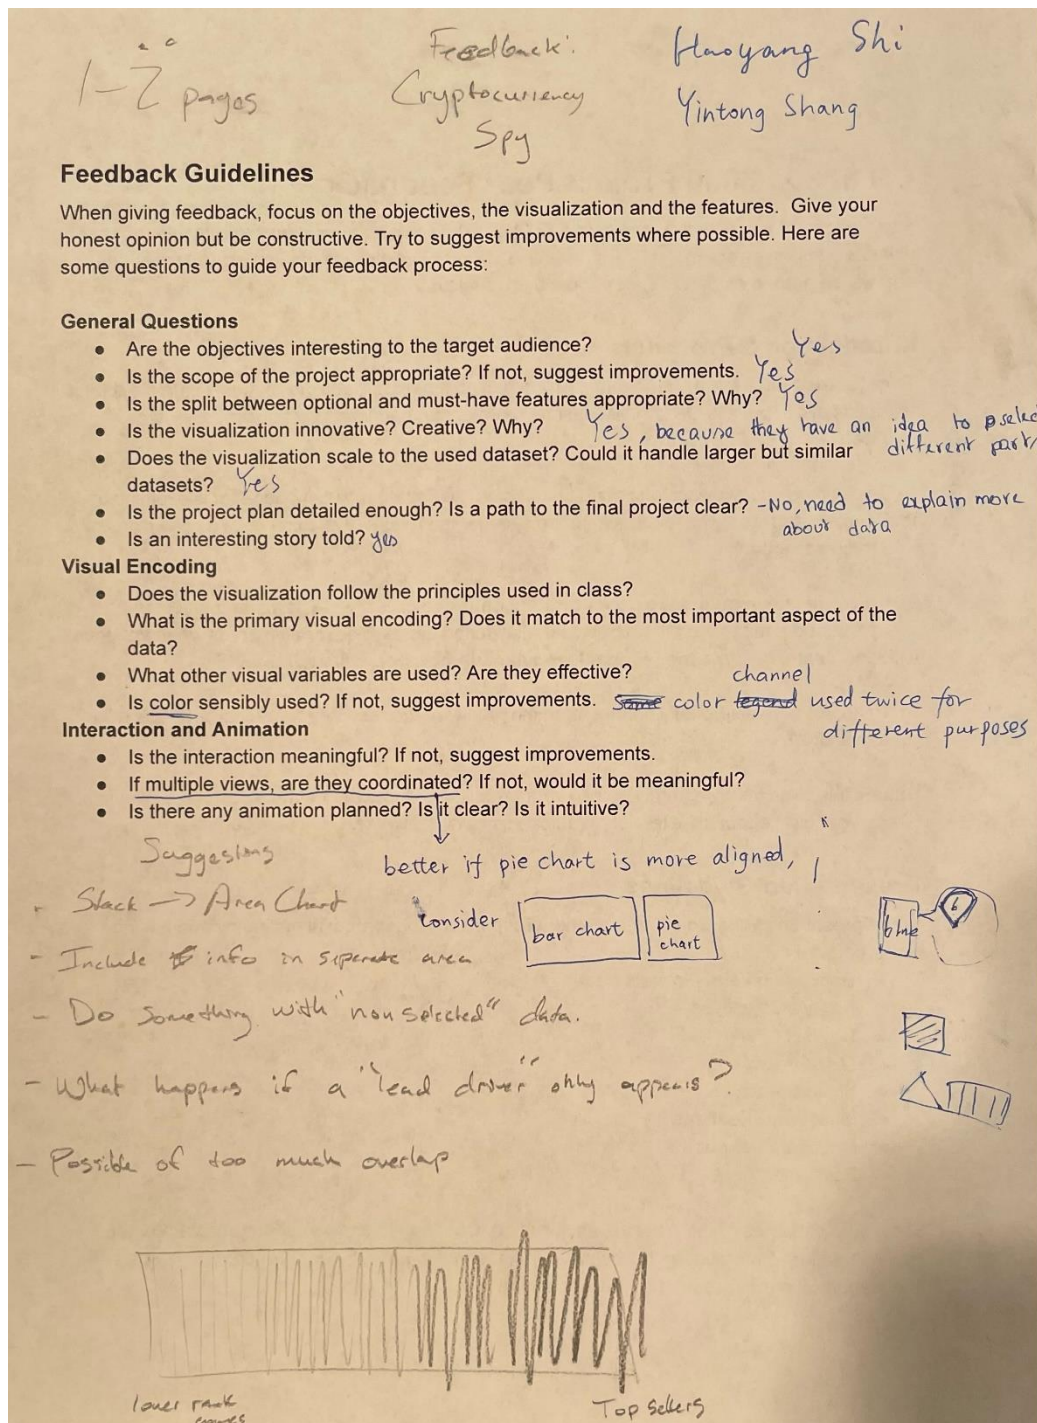 1-2 pages
Feedback:
Cryptocurrency
Spy
Haoyang Shi
Yintong Shang
Feedback Guidelines
When giving feedback, focus on the objectives, the visualization and the features. Give your
honest opinion but be constructive. Try to suggest improvements where possible. Here are
some questions to guide your feedback process:
General Questions
● Are the objectives interesting to the target audience? Yes
● Is the scope of the project appropriate? If not, suggest improvements. Yes
● Is the split between optional and must-have features appropriate? Why? Yes
● Is the visualization innovative? Creative? Why? Yes, because they have an idea to
different part
● Does the visualization scale to the used dataset? Could it handle larger but similar
datasets? Yes
● Is the project plan detailed enough? Is a path to the final project clear? -No, need to explain more
about data
● Is an interesting story told? yes
Visual Encoding
● Does the visualization follow the principles used in class?
● What is the primary visual encoding? Does it match to the most important aspect of the
data?
● What other visual variables are used? Are they effective?
channel
● Is color sensibly used? If not, suggest improvements. Same color legend used twice for
different purposes
Interaction and Animation
● Is the interaction meaningful? If not, suggest improvements.
● If multiple views, are they coordinated? If not, would it be meaningful?
● Is there any animation planned? Is it clear? Is it intuitive?
Suggestions
better if pie chart is more aligned,
- Stack -> Area Chart
consider
bar chart
pie
chart
blue
- Include info in seperate area
- Do something with "non selected" data.
- What happens if a "lead driver" only appears?
- Possible of too much overlap
lower rank
Top Sellers